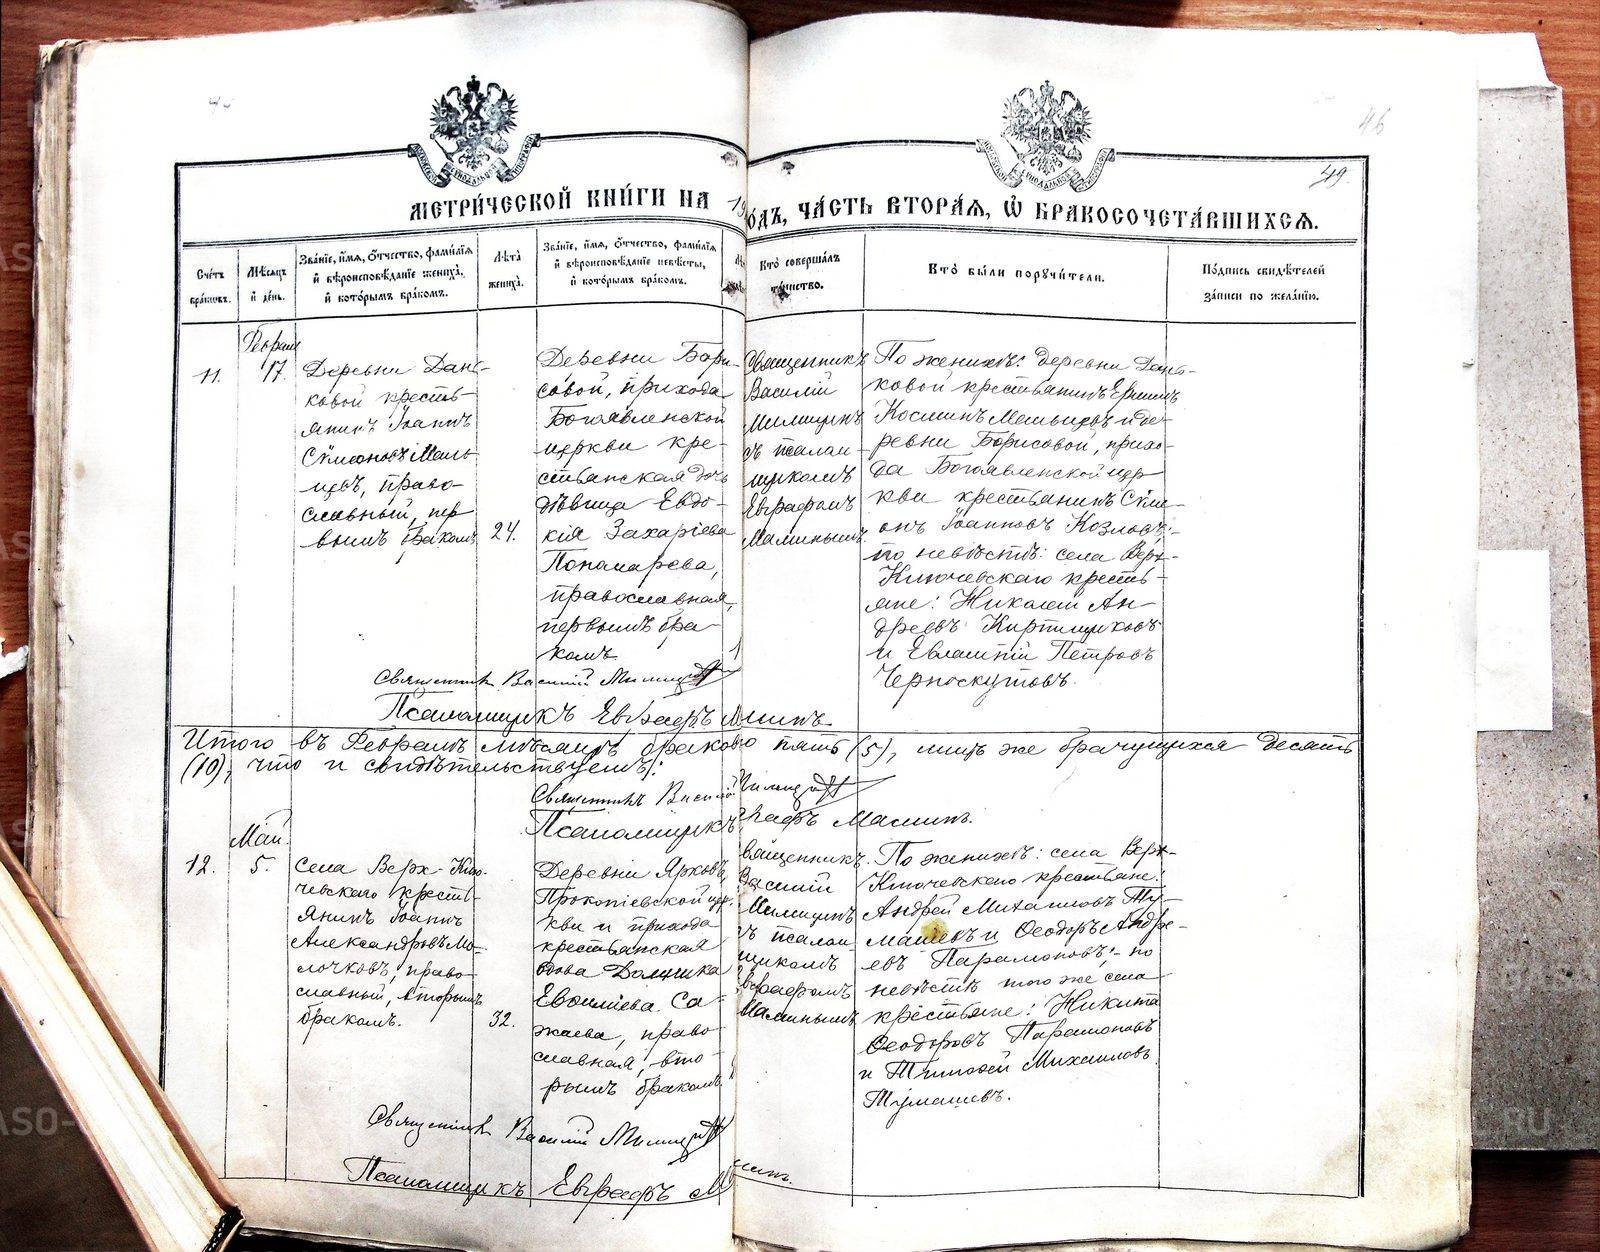 46
49.
МЕТРИЧЕСКОЙ КНИГИ НА 19
ОДЪ, ЧАСТЬ ВТОРАЯ, Ѡ БРАКОСОЧЕТАВШИХСЯ.
Счетъ браковъ.
Мѣсяцъ и день.
Званіе, имя, отчество, фамилія
и вѣроисповѣданіе жениха,
и которымъ бракомъ.
Лѣта жениха.
Званіе, имя, отчество, фамилія
и вѣроисповѣданіе невѣсты,
и которымъ бракомъ.
Кто совершалъ
таинство.
Кто были поручители.
Подпись свидѣтелей
записи по желанію.
11.
17.
Деревни Дань-
ковой кресть-
янинъ Іоаннъ
Сѷмеоновъ Маль-
цевъ, право-
славный, пер
вымъ бракомъ
24.
Деревни Бори-
совой, прихода
Богоявленской
церкви кре-
стьянская дочь
дѣвица Евдо-
кія Захаріева
Пономарева,
православная,
первымъ бра-
комъ
Священникъ
Василій
Милицынъ
съ псалом
щикомъ
Евграфомъ
Маминымъ
По женихѣ: деревни Дань-
ковой крестьянинъ
Косминъ Мальцевъ и де-
ревни Борисовой, прихо-
да Богоявленской цер
кви крестьянинъ Сѷме-
онъ Іоанновъ Козловъ;-
по невѣстѣ: села Верх-
Ключевскаго кресть-
яне: Николай Ан-
дреевъ Кирпищиковъ
и Евлампій Петровъ
Черноскутовъ.
Священникъ Василій Милицынъ
Псаломщикъ Евграфъ Маминъ
Итого въ Февралѣ мѣсяцѣ браковъ пять (5), лицъ же брачущихся десять
(10), что и свидѣтельствуемъ:
Священникъ Василій Милицынъ
Псаломщикъ Евграфъ Маминъ.
Май.
12.
5.
Села Верх-Клю-
чевскаго кресть-
янинъ Іоаннъ
Александровъ Мо-
лочковъ, право-
славный, вторымъ
бракомъ.
32.
Деревни Ярковъ,
Прокопіевской цер.
кви и прихода
крестьянская
вдова Домника
Евсиліева Са-
жаева, право-
славная, вто-
рымъ бракомъ
вященникъ
Василій
Милицынъ
ъ псалом
щикомъ
Евграфомъ
Маминымъ
По женихѣ: села Верх-
Ключевскаго крестьяне:
Андрей Михаиловъ Ту-
машевъ и Ѳеодоръ Андре-
евъ Парамоновъ;- по
невѣстѣ того же села
крестьяне: Никита
Ѳеодоровъ Парамоновъ
и Тимоѳей Михаиловъ
Тумашевъ.
Священникъ Василій Милицынъ
Псаломщикъ Евграфъ Маминъ.